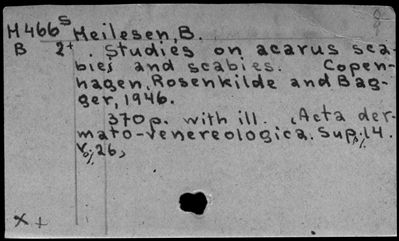 M466S Meilesen, B.
B 2+ . Studies on acarus sca-
bies and scabies. Copen-
hagen, Rosenkilde and Bag-
ger, 1946.
370p. with ill. (Acta der-
mato-venereologica. Sup. 14.
v. 26)
x +